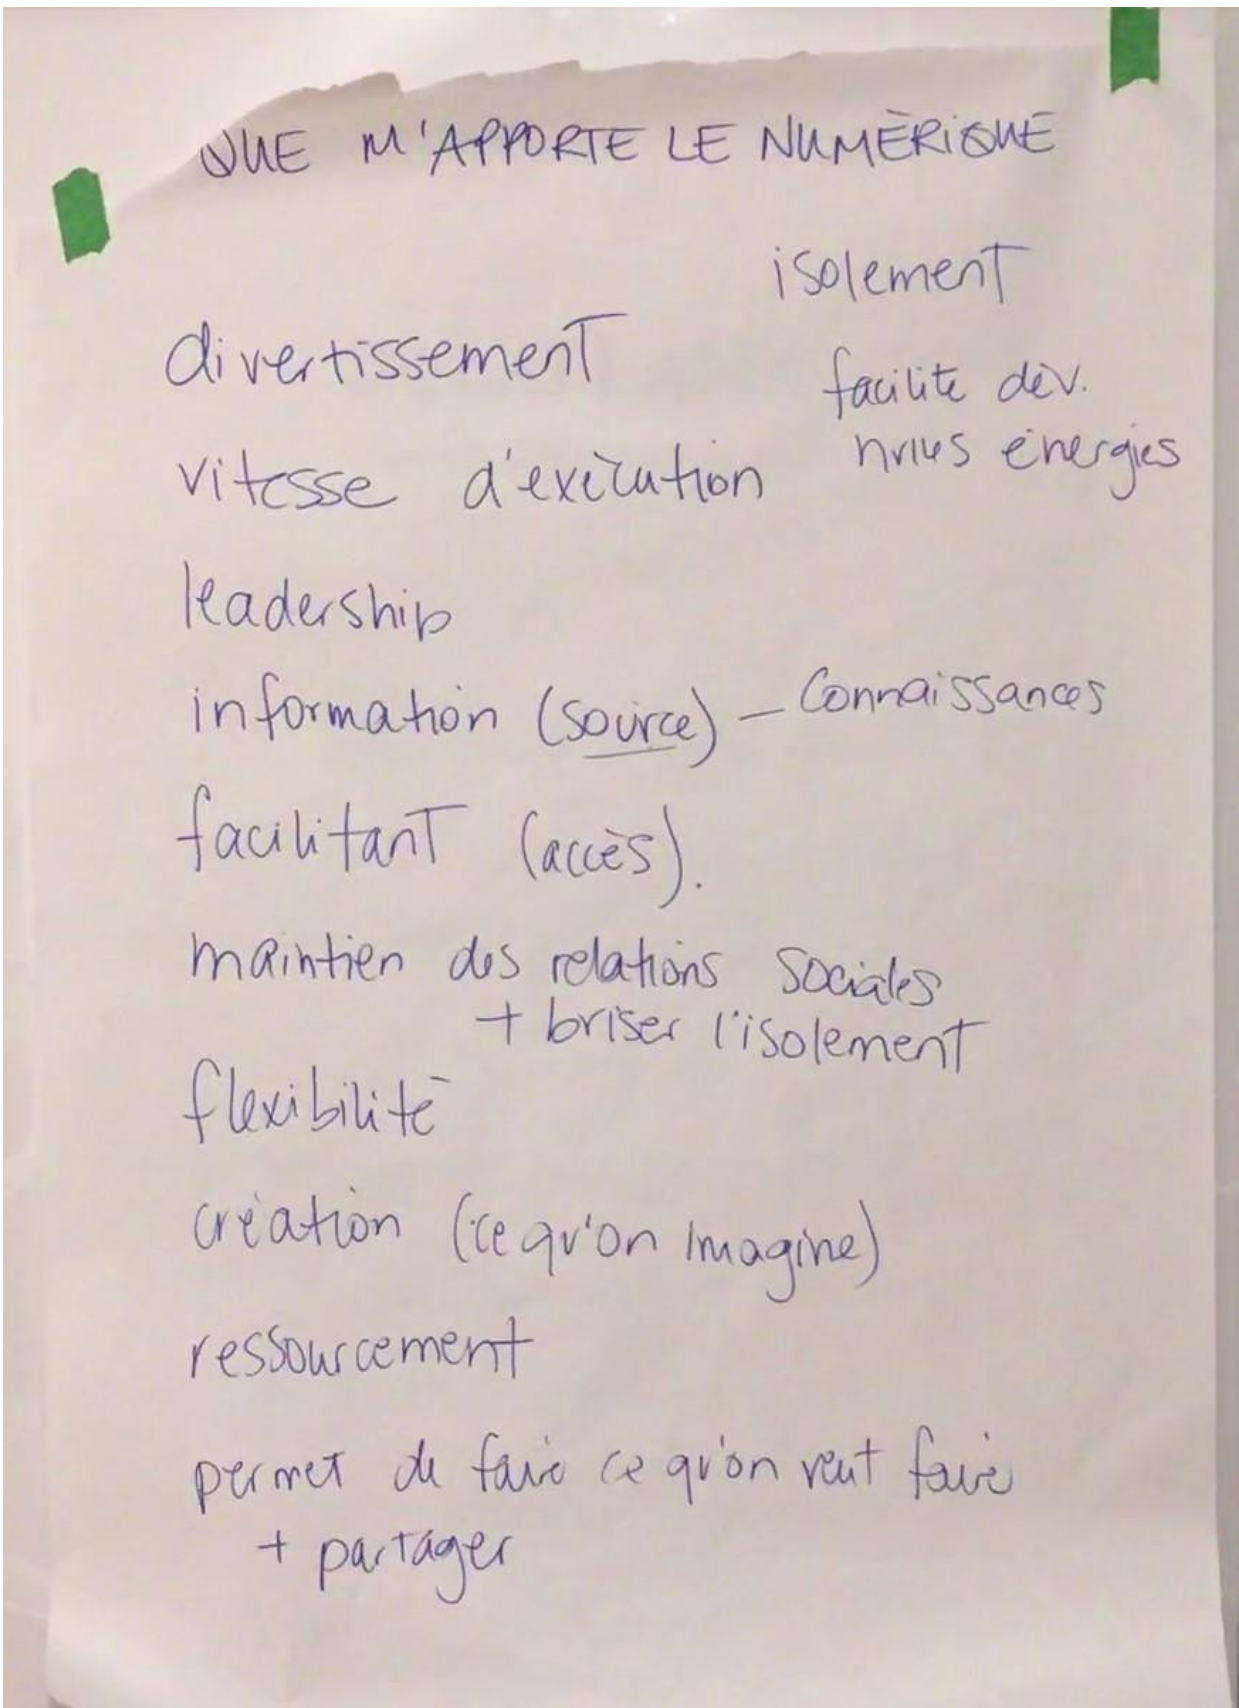 QUE M'APPORTE LE NUMÉRIQUE
isolement
divertissement
facilite dév.
nvlles énergies
vitesse d'exécution
leadership
information (source) - Connaissances
facilitant (accès).
maintien des relations sociales
+ briser l'isolement
flexibilité
création (ce qu'on imagine)
ressourcement
permet de faire ce qu'on veut faire
+ partager